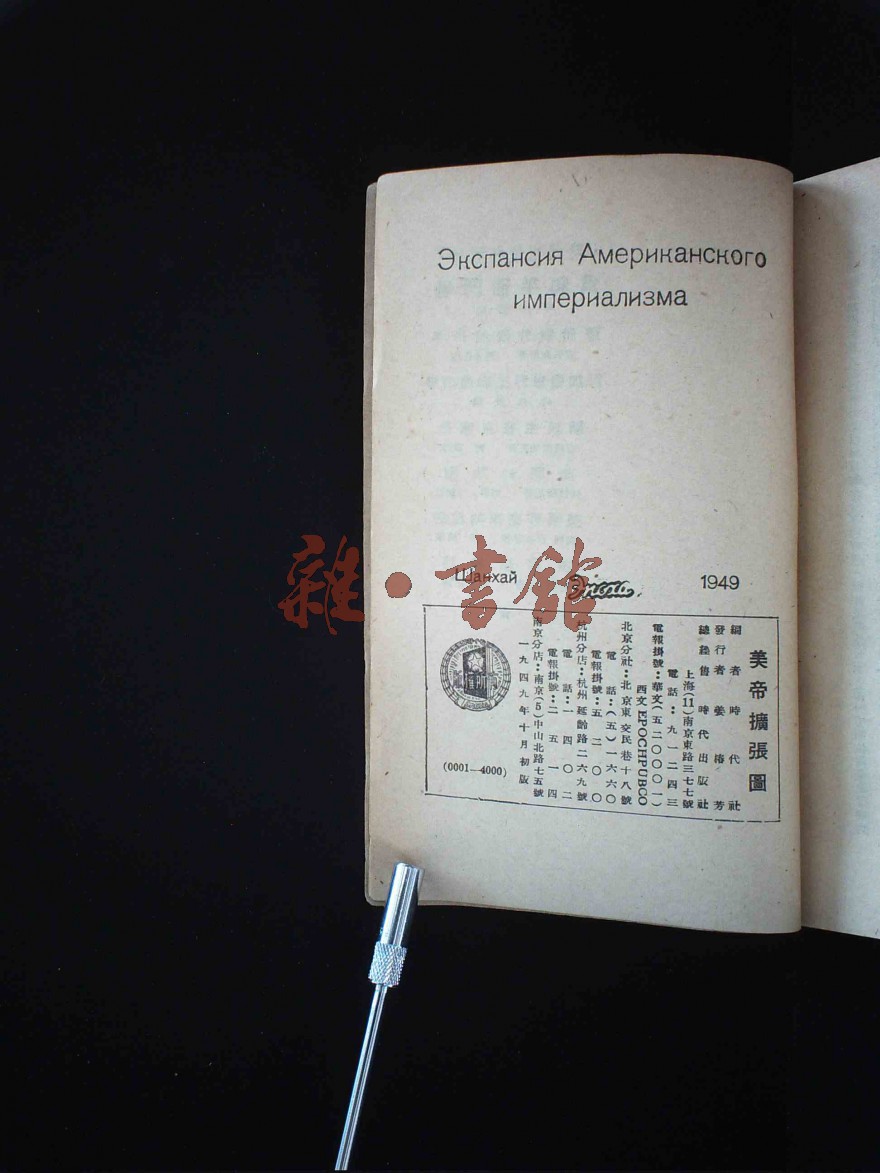 Экспансия Американского
империализма
Шанхай
Эпоха
1949
雜·書館
美帝擴張圖
編者 時代社
發行者 姜椿芳
總經售 時代出版社
上海(11)南京東路三七七號
電話:九一二四三
電報掛號:華文(五二〇〇〇一)
西文 EPOCHPUBCO
北京分社:北京東交民巷十八號
電話:(五)一六六〇
電報掛號:五二〇〇
杭州分店:杭州延齡路二六九號
電話:一四〇二
電報掛號:二五一四
南京分店:南京(5)中山北路七五號
一九四九年十月初版
(0001—4000)